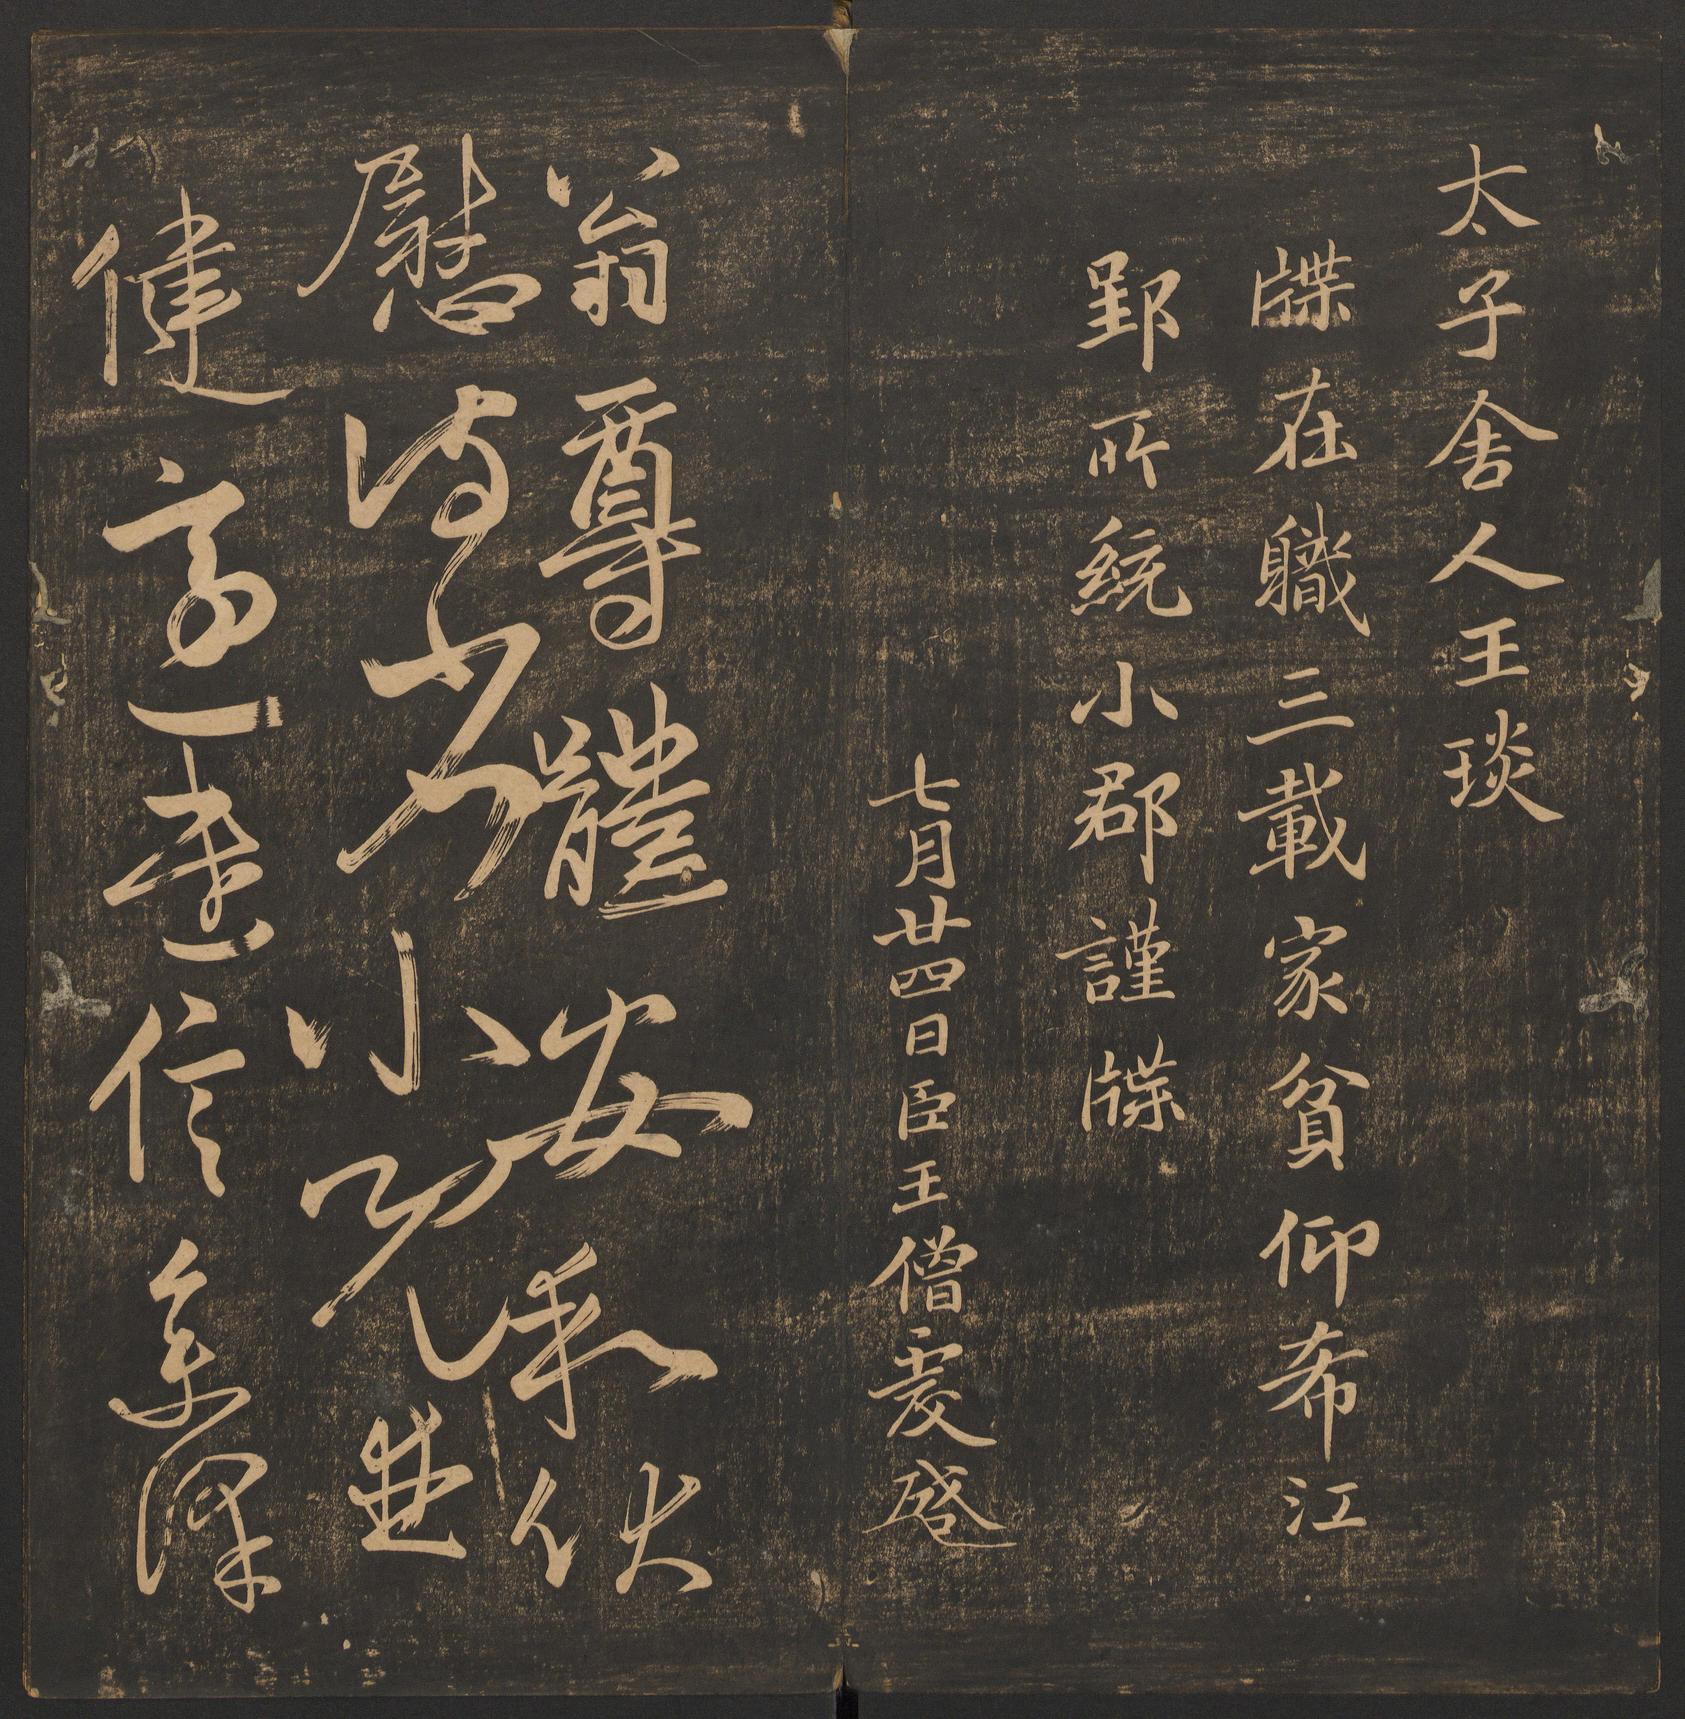 太子舍人王琰
牒在職三載家貧仰希江
郢所統小郡謹牒
七月廿四日臣王僧虔啓
翁尊體安和伏
慰侍省小兒並
健適遣信